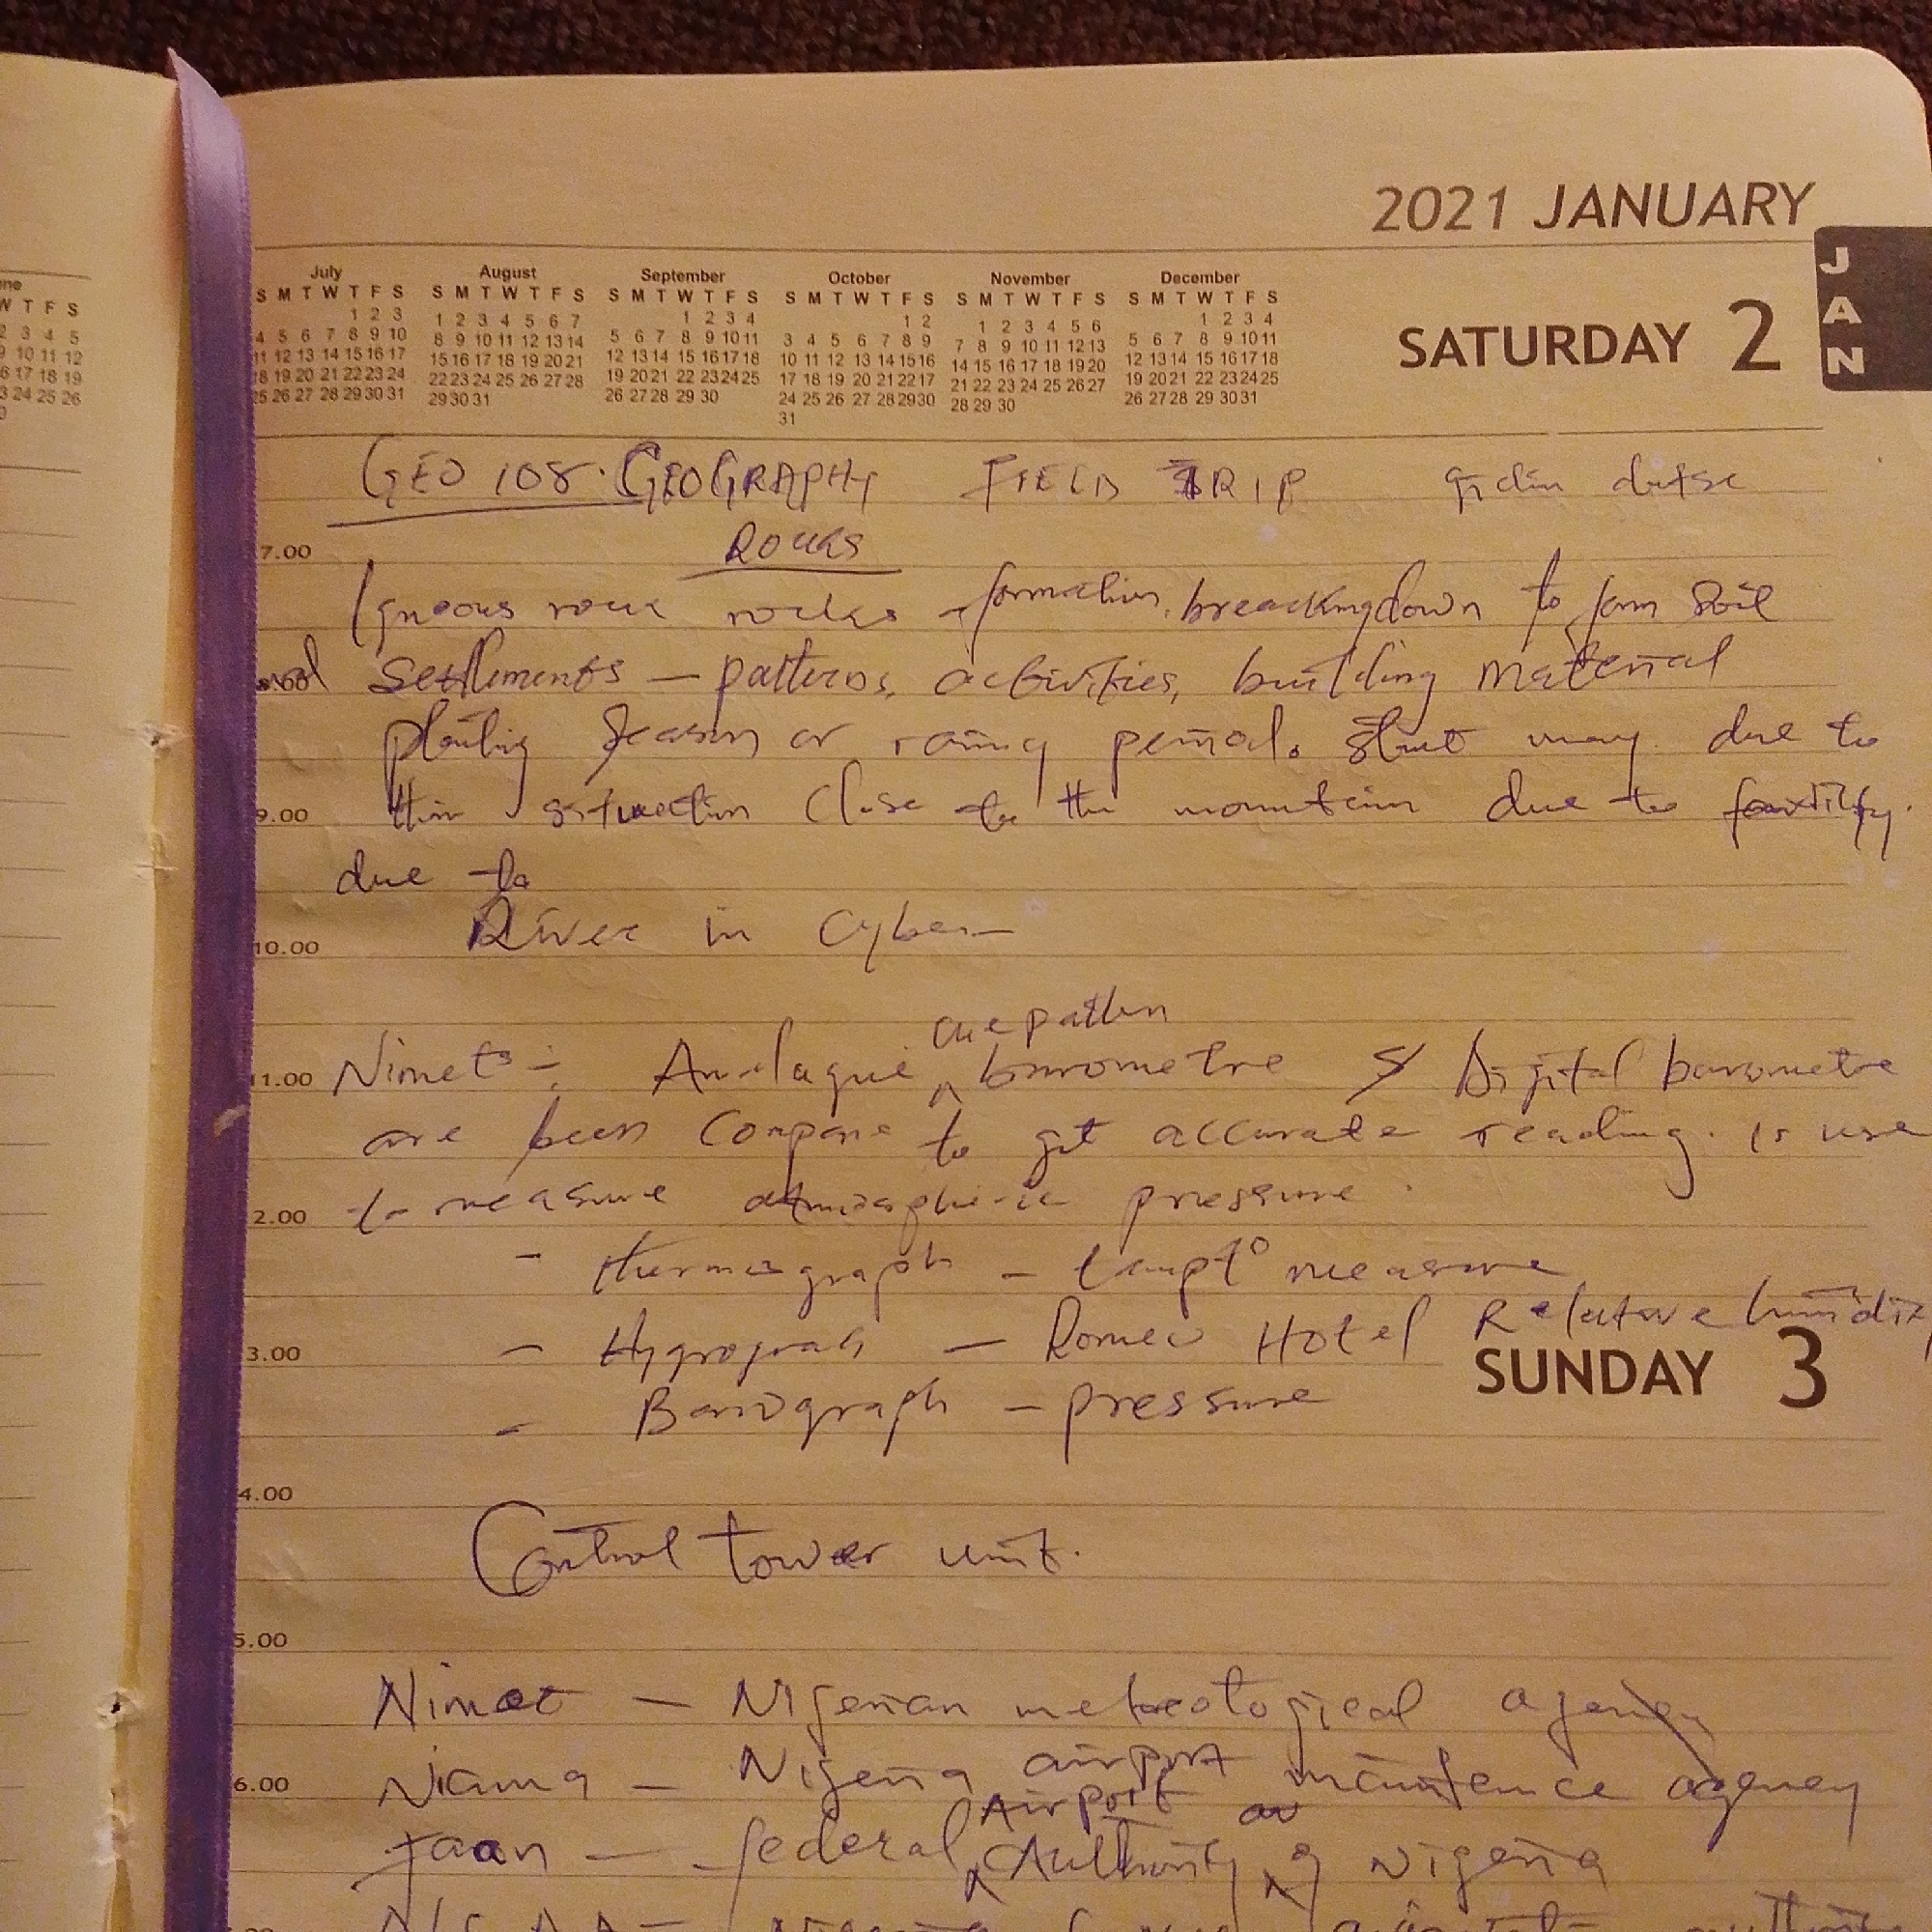 2021 JANUARY
JAN
SATURDAY 2
July August September October November December
S M T W T F S S M T W T F S S M T W T F S S M T W T F S S M T W T F S S M T W T F S
W T F S
1 2 3 1 2 3 4 5 6 7 1 2 3 4 1 2 1 2 3 4 5 6 1 2 3 4
2 3 4 5 4 5 6 7 8 9 10 8 9 10 11 12 13 14 5 6 7 8 9 10 11 3 4 5 6 7 8 9 7 8 9 10 11 12 13 5 6 7 8 9 10 11
9 10 11 12 11 12 13 14 15 16 17 15 16 17 18 19 20 21 12 13 14 15 16 17 18 10 11 12 13 14 15 16 14 15 16 17 18 19 20 12 13 14 15 16 17 18
6 17 18 19 18 19 20 21 22 23 24 22 23 24 25 26 27 28 19 20 21 22 23 24 25 17 18 19 20 21 22 23 21 22 23 24 25 26 27 19 20 21 22 23 24 25
3 24 25 26 25 26 27 28 29 30 31 29 30 31 26 27 28 29 30 24 25 26 27 28 29 30 28 29 30 26 27 28 29 30 31
31
GEO 108. GEOGRAPHY FIELD TRIP gidin dutse
7.00 ROCKS
Igneous rock rocks - formation, breakingdown to form soil
8.00 Settlements - patterns, activities, building material
planting season or raining period.
9.00 situation close to the mountain due to
due to
10.00 River in Cyber
pattern
11.00 Nimet Analogue barometre & Digital barometre
are been compare to get accurate reading. is use
2.00 to measure atmospheric pressure.
- thermograph - tempt° measure
- Hygrograph - Romeo Hotel Relative humidity
3.00 SUNDAY 3
- Barograph - pressure
4.00
Control tower unit.
5.00
Nimet - Nigerian meteological agency
6.00 Niama - Nigeria airport maintence agency
Airport
faan - federal Authority of Nigeria